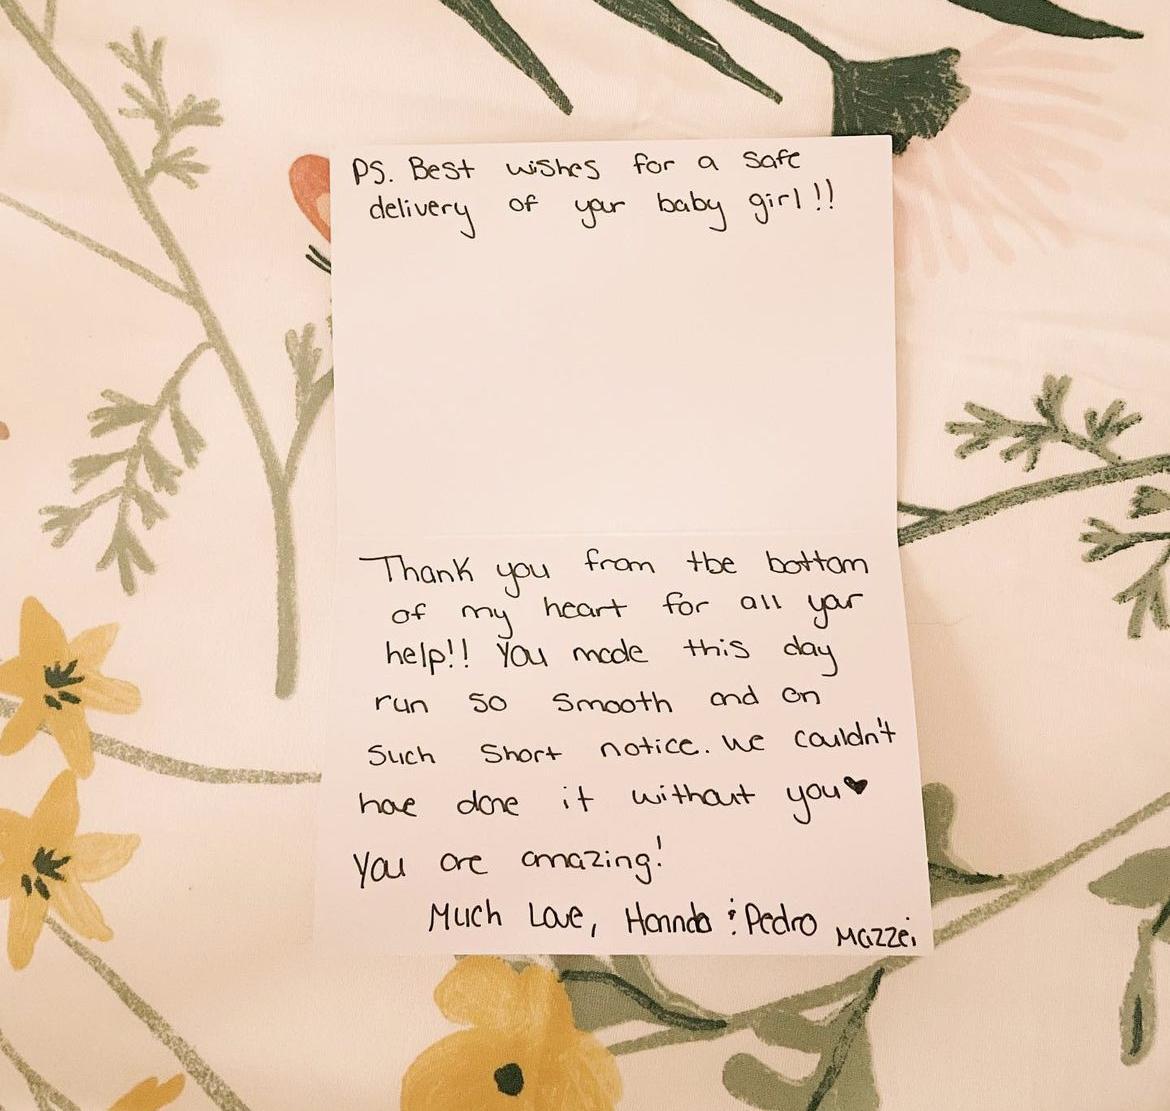 PS. Best wishes for a safe
delivery of your baby girl!!
Thank you from the bottom
of my heart for all your
help!! You made this day
run so smooth and on
such short notice. We couldn't
have done it without you♥
You are amazing!
Much Love, Hannah & Pedro Mazzei